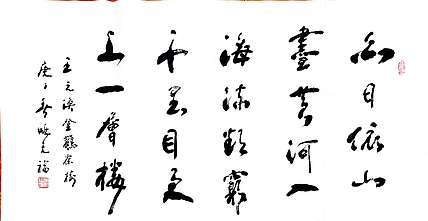 白日依山
盡黄河入
海流欲窮
千里目更
上一層樓
王之渙登鸛雀樓
庚子春